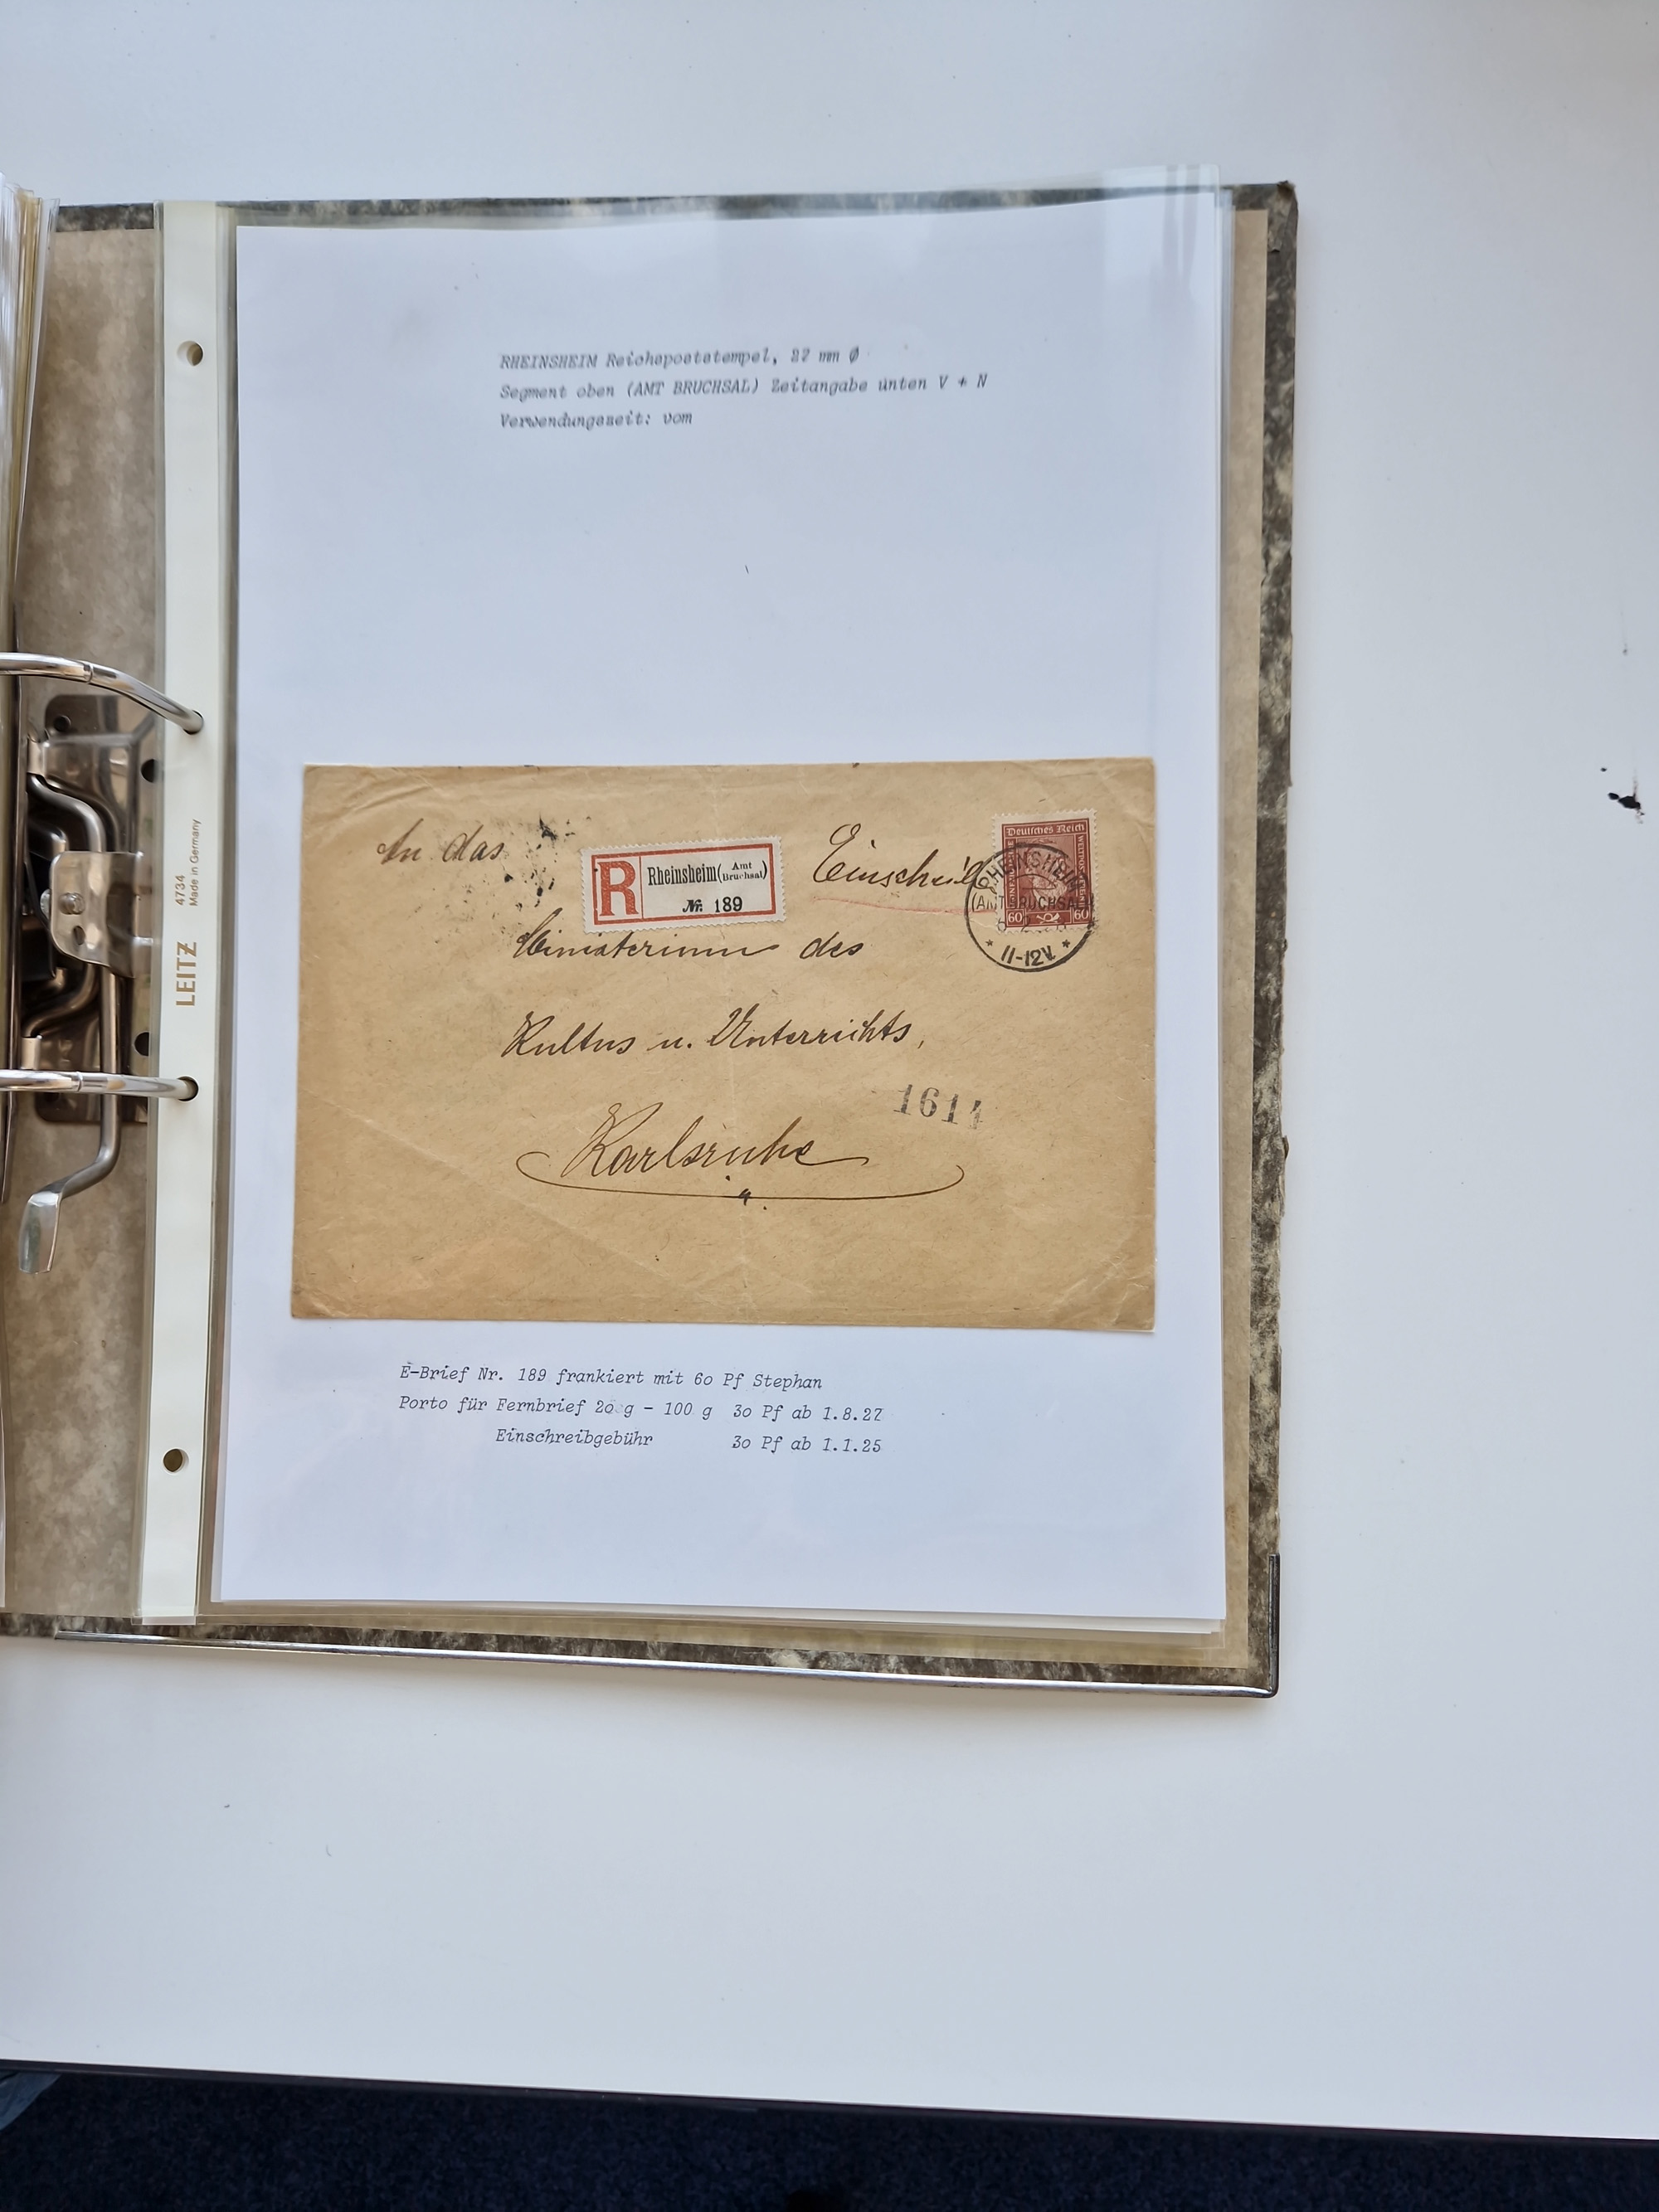 RHEINSHEIM Reichspoststempel, 27 mm Ø
Segment oben (AMT BRUCHSAL) Zeitangabe unten V + N
Verwendungszeit: vom
An das
R
Rheinsheim (Amt Bruchsal)
Nr. 189
Einschreib
Deutsches Reich
60 60
RHEINSHEIM
(AMT BRUCHSAL)
* 11-12V. *
Ministerium des
Kultus u. Unterrichts,
1614
Karlsruhe
E-Brief Nr. 189 frankiert mit 60 Pf Stephan
Porto für Fernbrief 20 g - 100 g 30 Pf ab 1.8.27
Einschreibgebühr 30 Pf ab 1.1.25
LEITZ 4734
Made in Germany